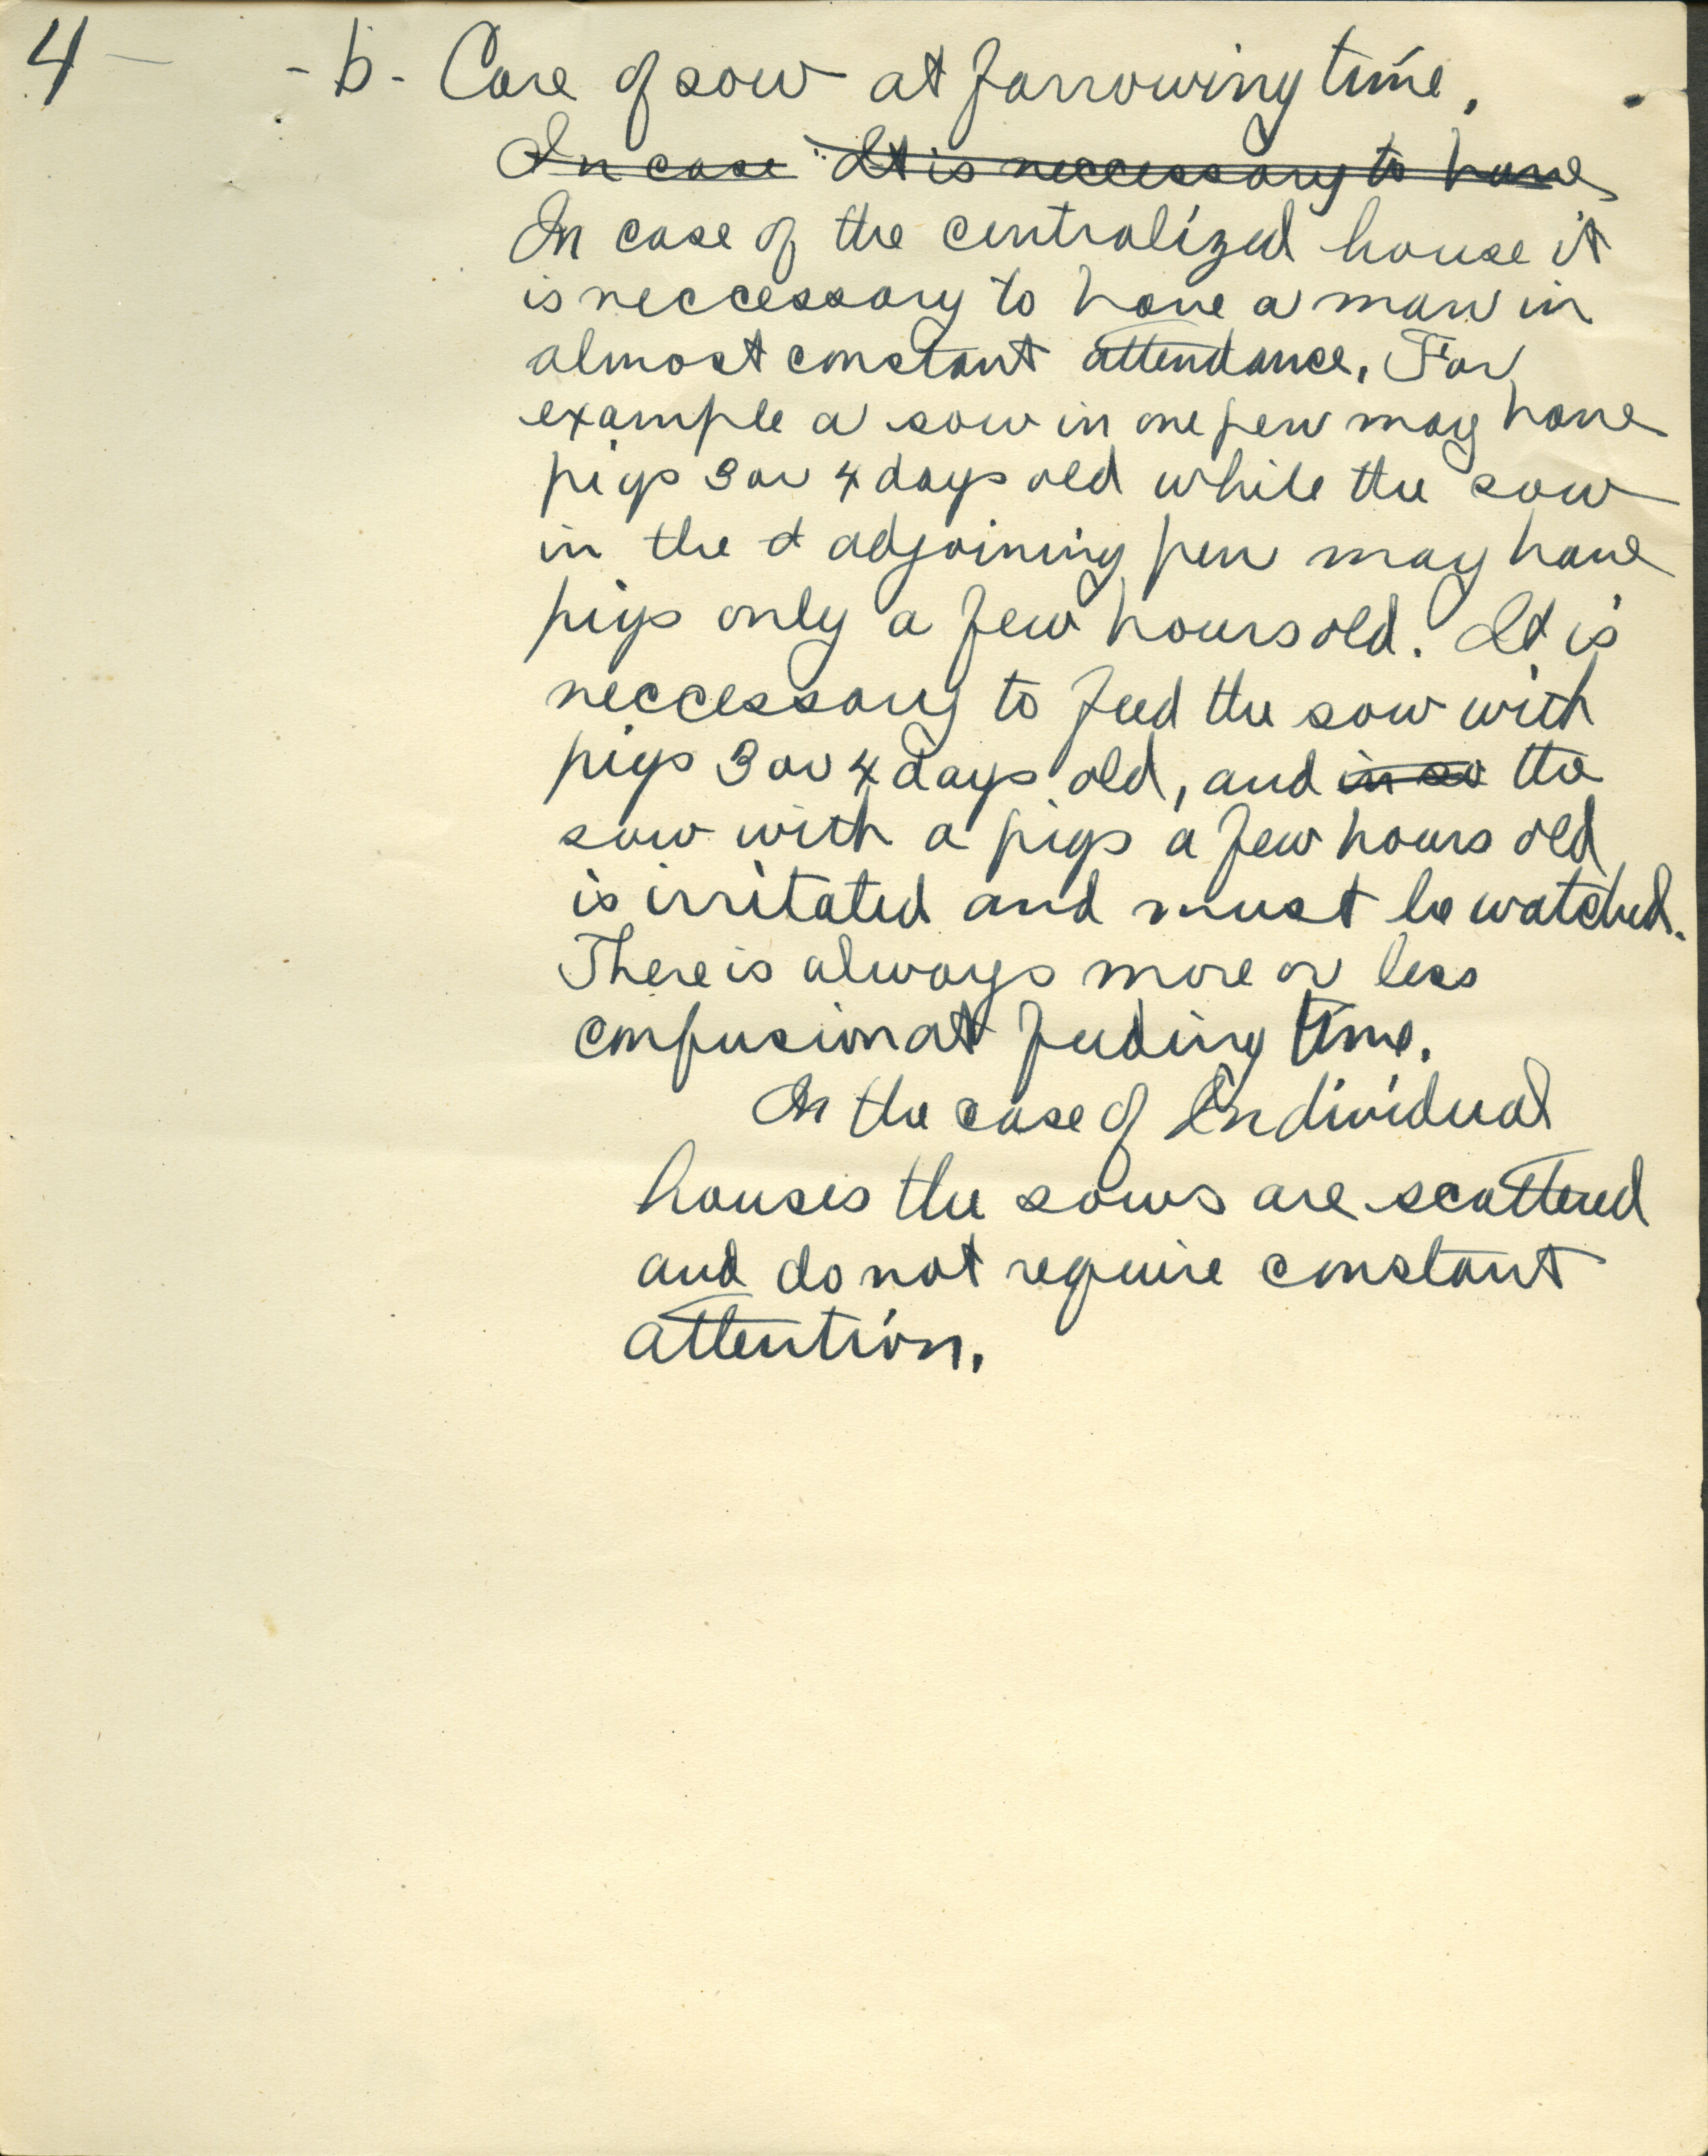 4 - - b - Care of sow at farrowing time.
In case It is neccessary to have
In case of the centralized house it
is neccessary to have a man in
almost constant attendance. For
example a sow in one pen may have
pigs 3 or 4 days old while the sow
in the a adjoining pen may have
pigs only a few hours old. It is
neccessary to feed the sow with
pigs 3 or 4 days old, and in so the
sow with a pigs a few hours old
is irritated and must be watched.
There is always more or less
confusion at feeding time.
In the case of Individual
houses the sows are scattered
and do not require constant
attention.